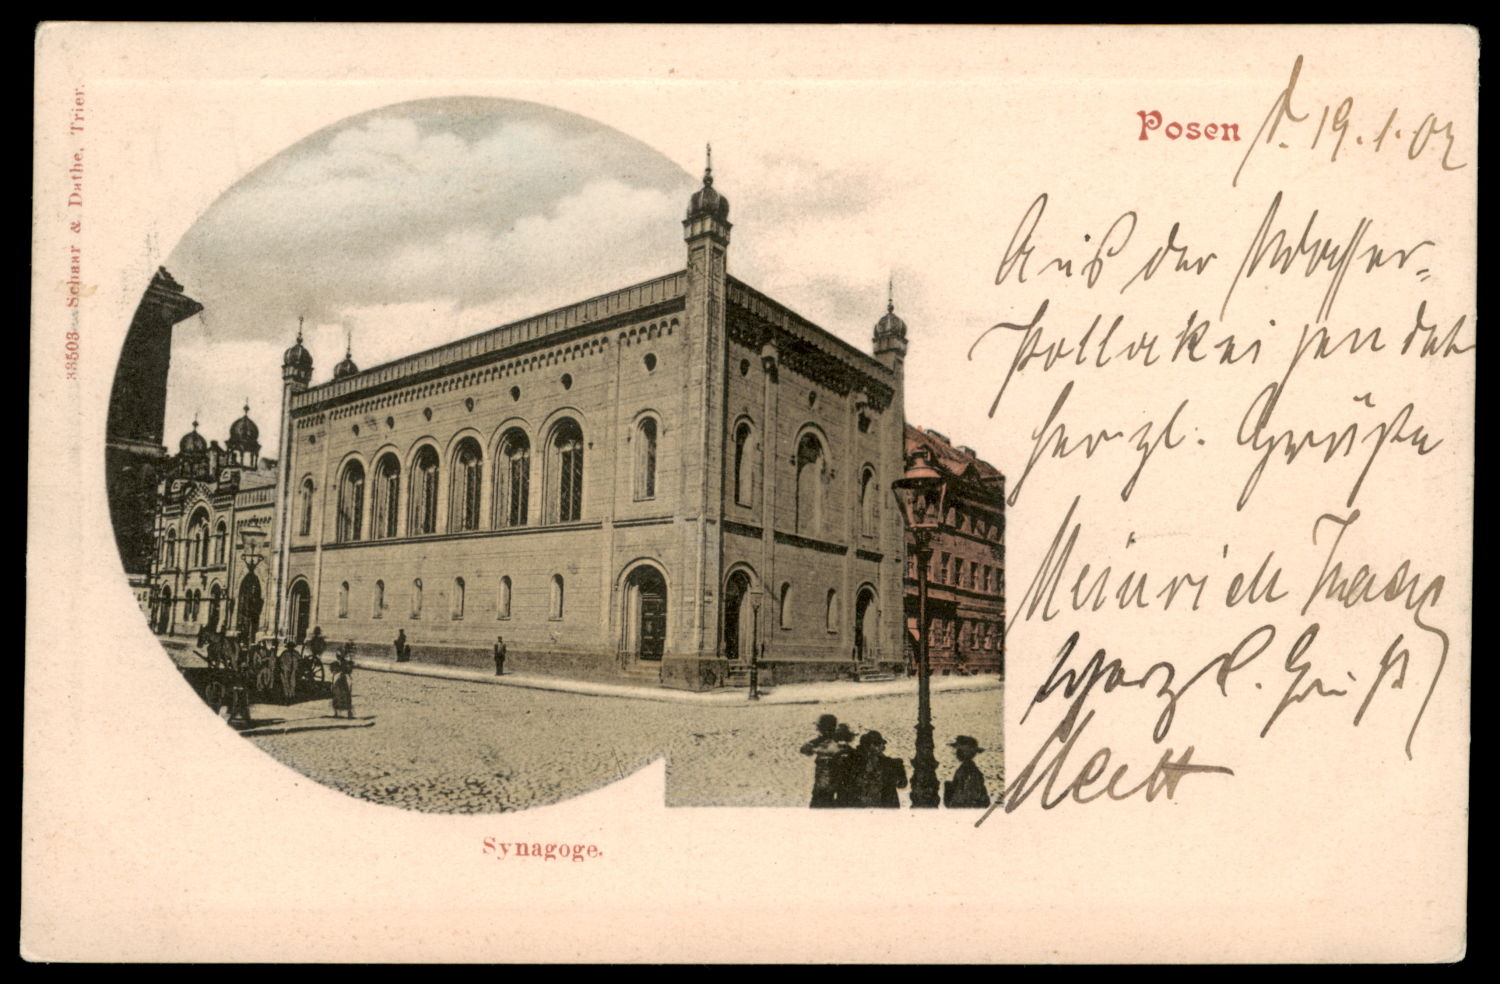 33503 Schaar & Dathe, Trier.
Posen d. 19.1.02
Aus der Wasser-
Pollakei sendet
herzl. Grüße
Heinrich
Herzl. Gruß
Synagoge.